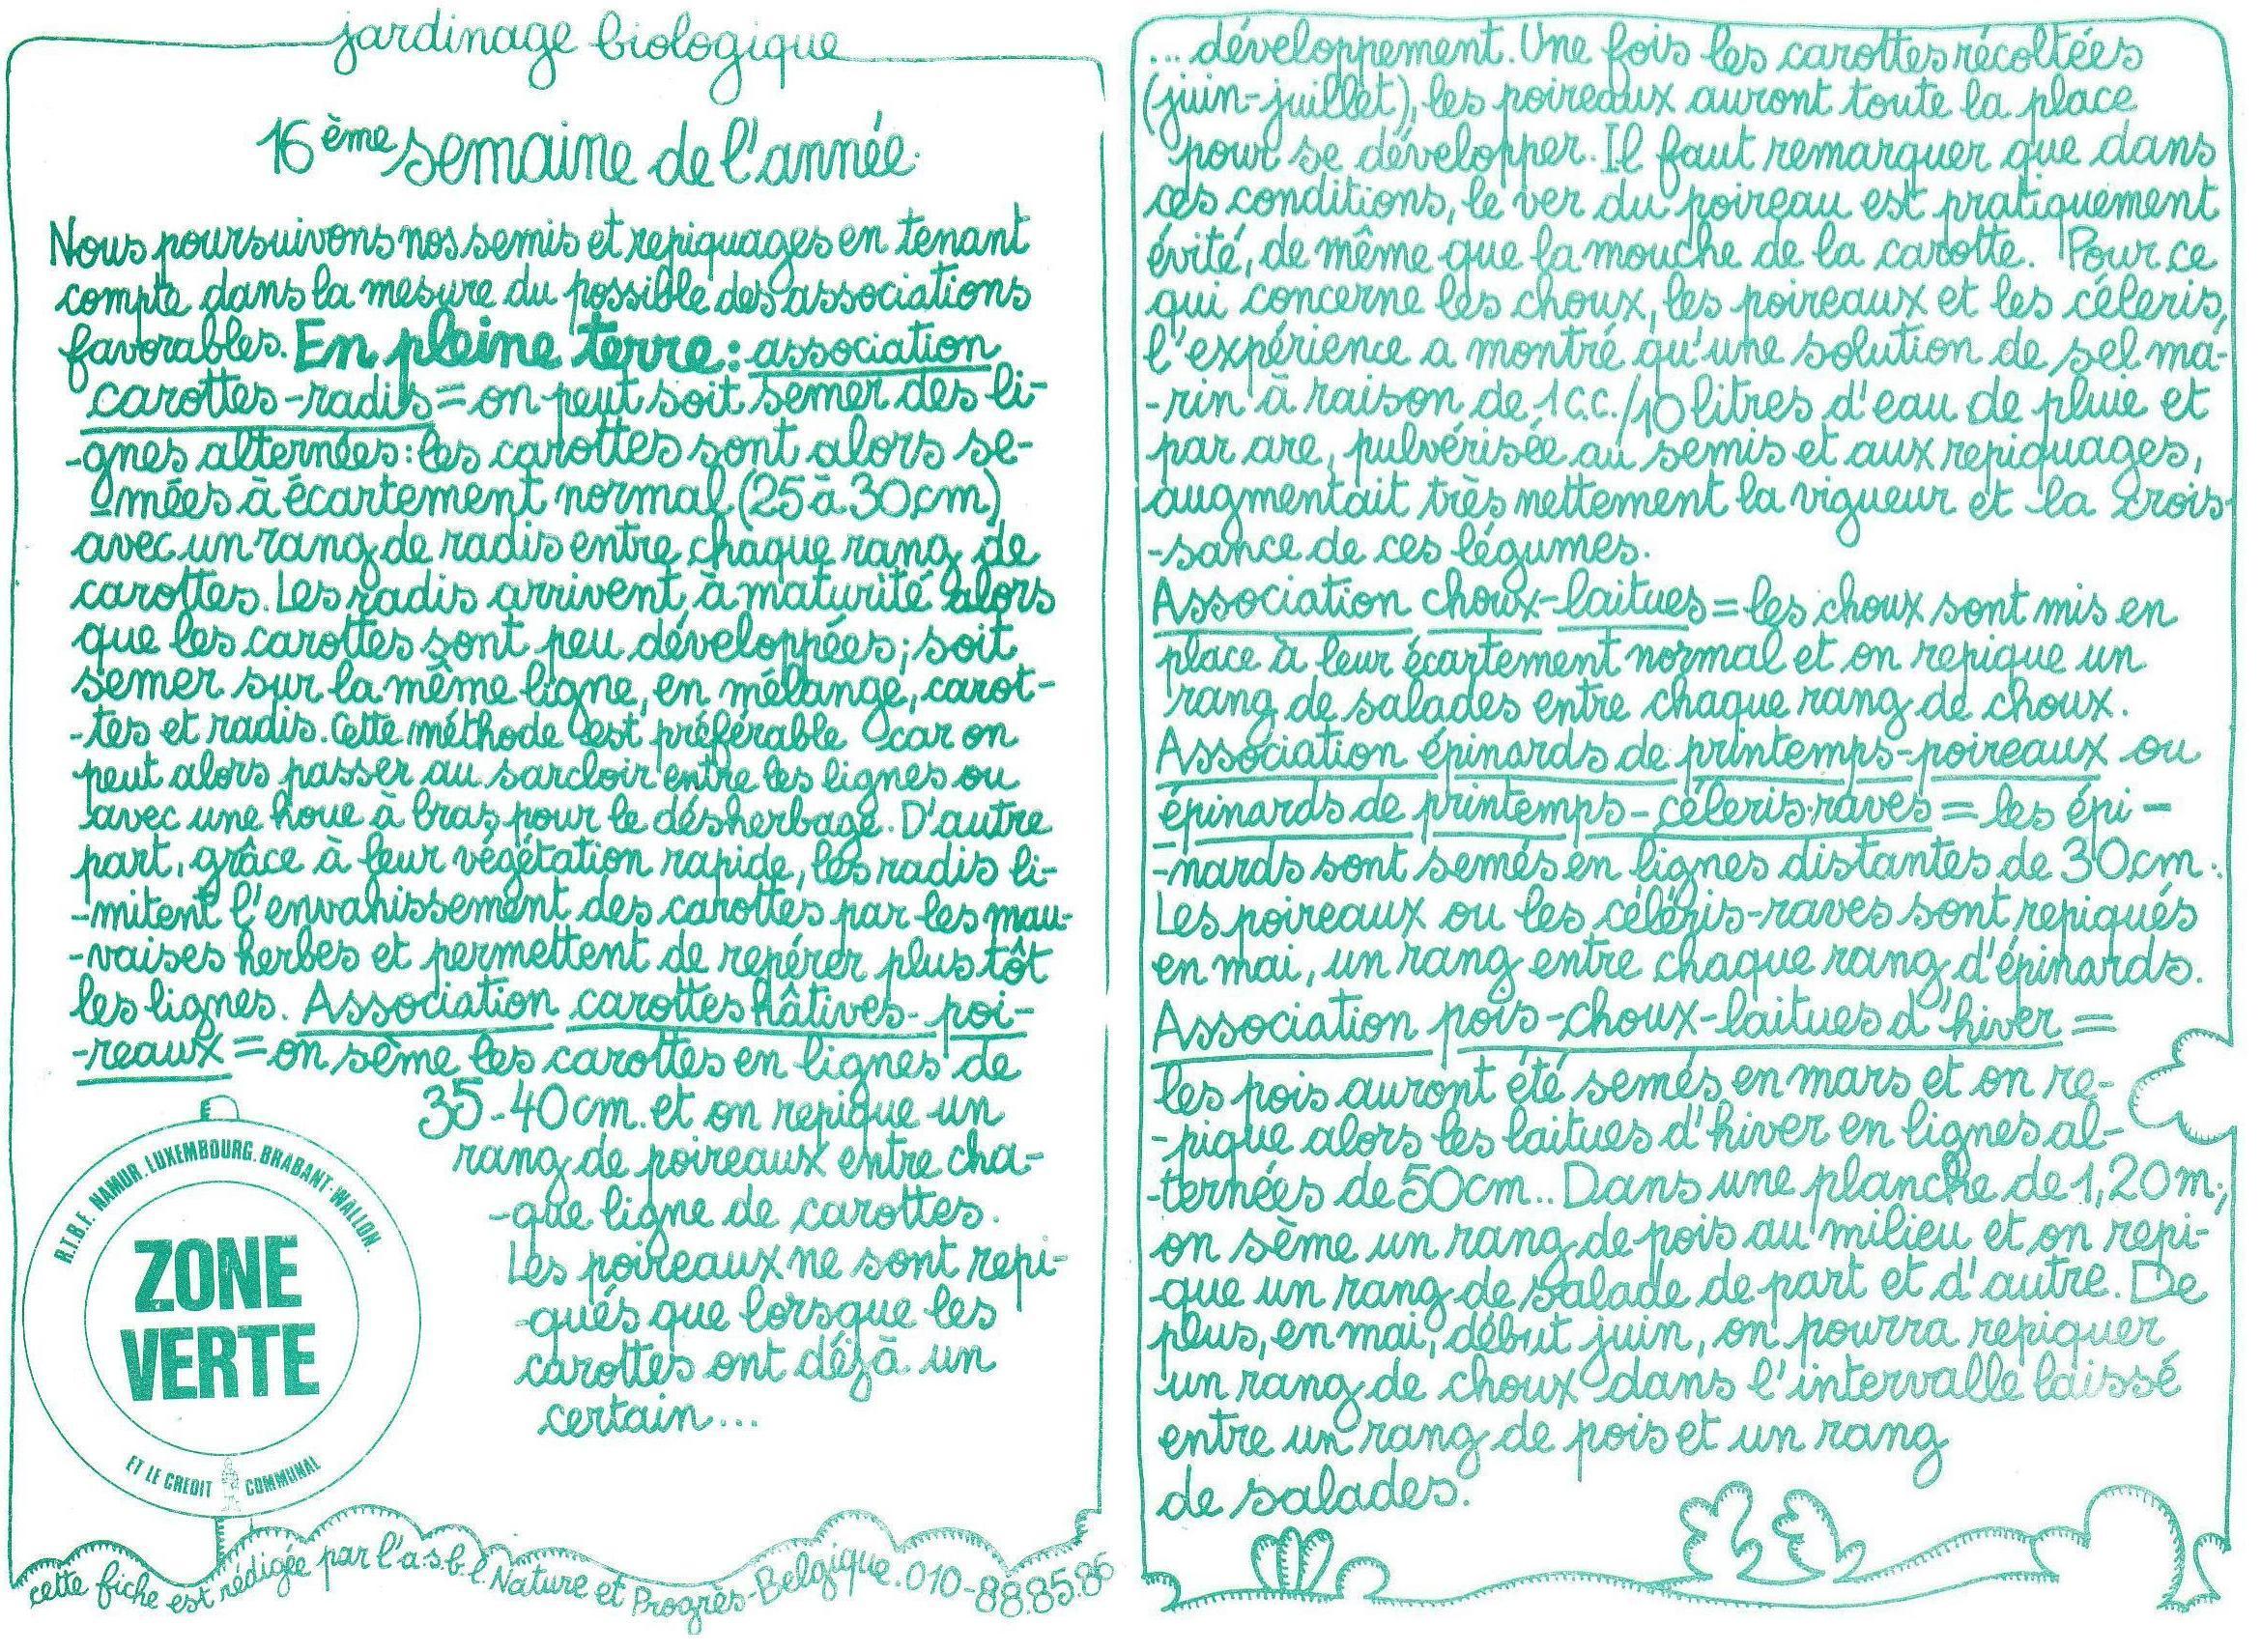 jardinage biologique
16ème semaine de l'année.
Nous poursuivons nos semis et repiquages en tenant
compte dans la mesure du possible des associations
favorables. En pleine terre: association
carottes-radis = on peut soit semer des li-
-gnes alternées: les carottes sont alors se-
mées à écartement normal (25 à 30cm)
avec un rang de radis entre chaque rang de
carottes. Les radis arrivent à maturité alors
que les carottes sont peu développées; soit
semer sur la même ligne, en mélange, carot-
-tes et radis. Cette méthode est préférable car on
peut alors passer au sarcloir entre les lignes ou
avec une houe à bras pour le désherbage. D'autre
part, grâce à leur végétation rapide, les radis li-
-mitent l'envahissement des carottes par les mau-
-vaises herbes et permettent de repérer plus tôt
les lignes. Association carottes hâtives- poi-
-reaux = on sème les carottes en lignes de
35-40cm. et on repique un
rang de poireaux entre cha-
-que ligne de carottes.
Les poireaux ne sont repi-
-qués que lorsque les
carottes ont déjà un
certain...
R.T.B.F. NAMUR. LUXEMBOURG. BRABANT-WALLON.
ZONE
VERTE
ET LE CREDIT COMMUNAL
cette fiche est rédigée par l'a.s.b.l. Nature et Progrès-Belgique. 010-88.85.86
... développement. Une fois les carottes récoltées
(juin-juillet), les poireaux auront toute la place
pour se développer. Il faut remarquer que dans
ces conditions, le ver du poireau est pratiquement
évité, de même que la mouche de la carotte. Pour ce
qui concerne les choux, les poireaux et les céleris,
l'expérience a montré qu'une solution de sel ma-
-rin à raison de 1c.c./10 litres d'eau de pluie et
par are, pulvérisée au semis et aux repiquages,
augmentait très nettement la vigueur et la crois-
-sance de ces légumes.
Association choux-laitues = les choux sont mis en
place à leur écartement normal et on repique un
rang de salades entre chaque rang de choux.
Association épinards de printemps-poireaux ou
épinards de printemps-céleris-raves = les épi-
-nards sont semés en lignes distantes de 30cm.
Les poireaux ou les céléris-raves sont repiqués
en mai, un rang entre chaque rang d'épinards.
Association pois-choux-laitues d'hiver =
les pois auront été semés en mars et on re-
-pique alors les laitues d'hiver en lignes al-
-ternées de 50cm.. Dans une planche de 1,20m,
on sème un rang de pois au milieu et on repi-
-que un rang de salade de part et d'autre. De
plus, en mai, début juin, on pourra repiquer
un rang de choux dans l'intervalle laissé
entre un rang de pois et un rang
de salades.